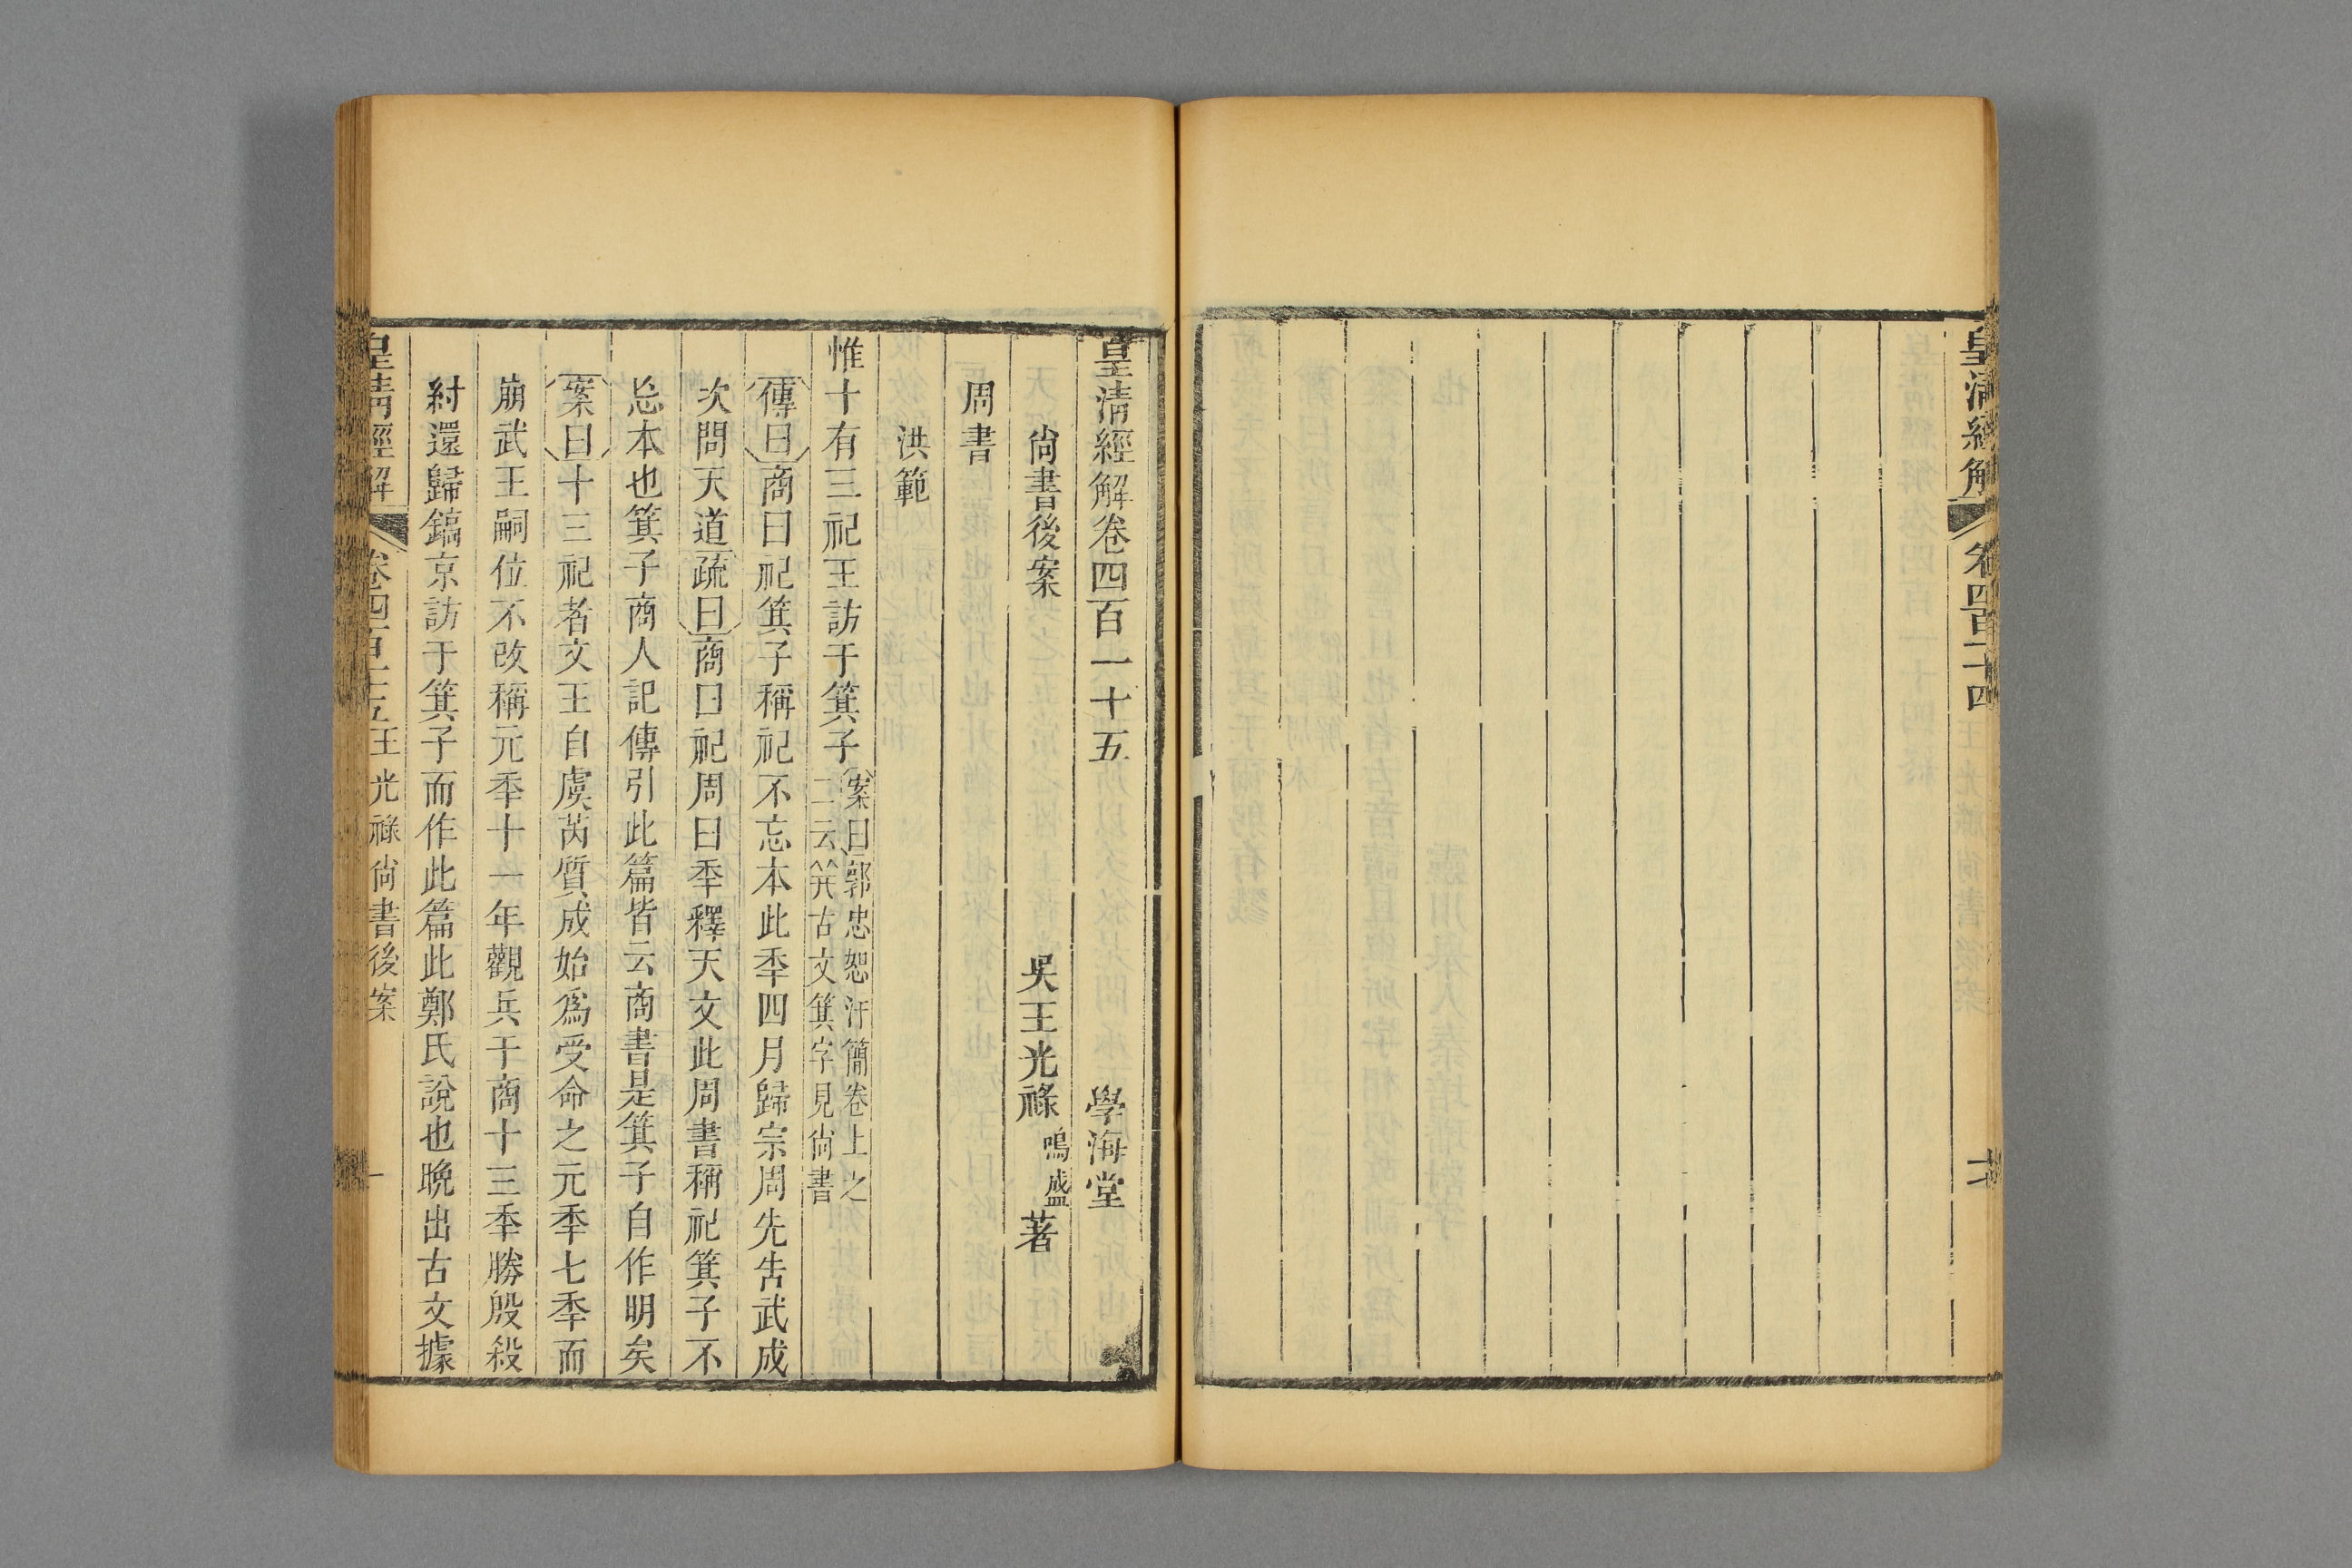 皇清經解
卷四百十四
皇清經解卷四百一十五
學海堂
尙書後案
吳王光祿鳴盛著
周書
洪範
惟十有三祀王訪于箕子
案曰郭忠恕汗簡卷上之
二云𠔋古文箕字見尙書
傳曰商曰祀箕子稱祀不忘本此秊四月歸宗周先告武成
次問天道疏曰商曰祀周曰秊釋天文此周書稱祀箕子不
忘本也箕子商人記傳引此篇皆云商書是箕子自作明矣
案曰十三祀者文王自虞芮質成始爲受命之元秊七秊而
崩武王嗣位不改稱元秊十一年觀兵于商十三秊勝殷殺
紂還歸鎬京訪于箕子而作此篇此鄭氏說也晚出古文據
皇清經解
卷四百十五
王光祿尙書後案
一